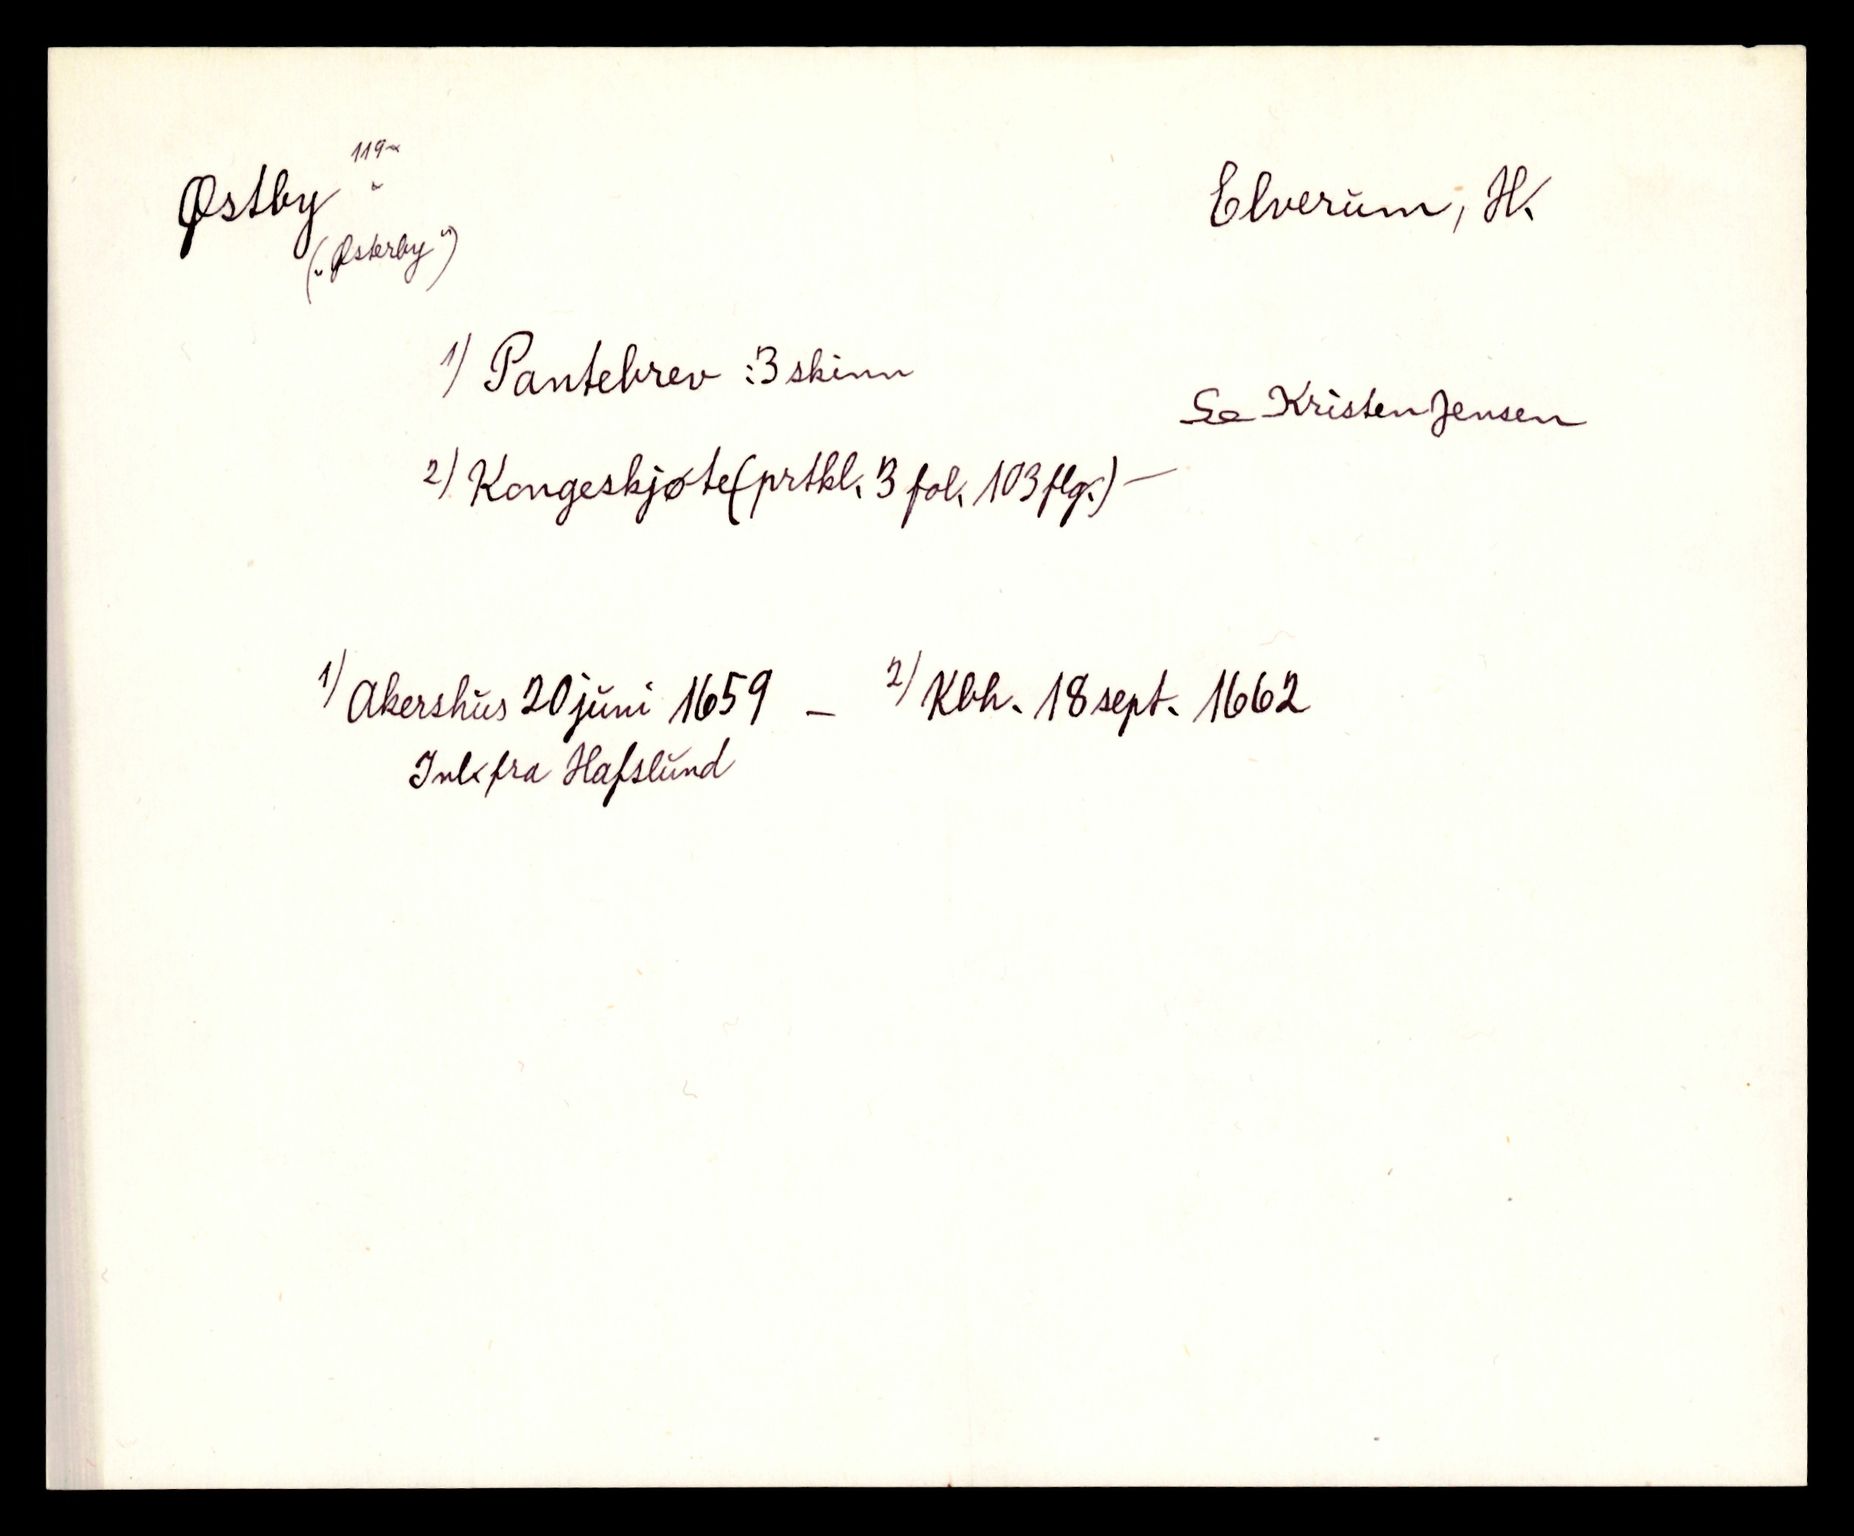 Østby 119
Elverum, H.
(„Østerby")
1) Pantebrev : 3 skinn
Se Kristen Jensen
2) Kongeskjøte (prtkl. 3 fol. 103 flg.) —
1) Akershus 20 juni 1659 — 2) Kbh. 18 sept. 1662
Inl. fra Hafslund